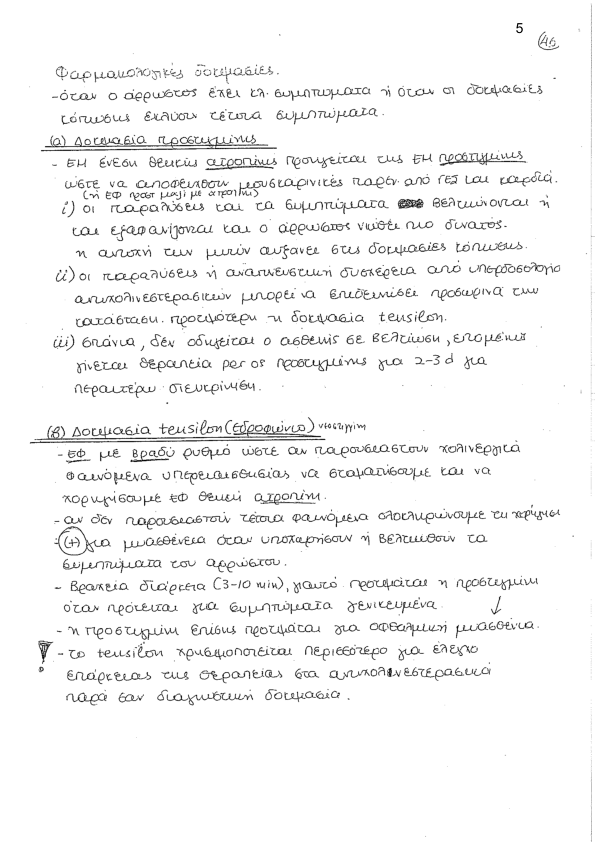 5
46
Φαρμακολογικές δοκιμασίες.
-όταν ο άρρωστος έχει κλ. συμπτώματα ή όταν οι δοκιμασίες
κόπωσης εκλύουν τέτοια συμπτώματα.
(α) Δοκιμασία προστιγμίνης
- ΕΜ ένεση θειικής ατροπίνης προηγείται της ΕΜ προστιγμίνης
ώστε να αποφευχθούν μουσκαρινικές παρεν. από ΓΕΣ και καρδιά.
(ή ΕΦ προστ μαζί με ατροπίνη)
i) οι παραλύσεις και τα συμπτώματα βελτιώνονται ή
και εξαφανίζονται και ο άρρωστος νιώθει πιο δυνατός.
η αντοχή των μυών αυξάνει στις δοκιμασίες κόπωσης.
ii) οι παραλύσεις ή αναπνευστική δυσχέρεια από υπερδοσολογία
αντιχολινεστερασικών μπορεί να επιδεινώσει προσωρινά την
κατάσταση. προτιμότερη η δοκιμασία tensilon.
iii) σπάνια, δεν οδηγείται ο ασθενής σε βελτίωση, επομένως
γίνεται θεραπεία per os προστιγμίνης για 2-3 d για
περαιτέρω διευκρίνιση.
(β) Δοκιμασία tensilon (Εδροφώνιο)
- ΕΦ με βραδύ ρυθμό ώστε αν παρουσιαστούν χολινεργικά
φαινόμενα υπερευαισθησίας να σταματήσουμε και να
χορηγήσουμε ΕΦ θειική ατροπίνη.
- αν δεν παρουσιαστούν τέτοια φαινόμενα ολοκληρώνουμε τη χορήγηση
- (+) για μυασθένεια όταν υποχωρήσουν ή βελτιωθούν τα
συμπτώματα του αρρώστου.
- βραχεία διάρκεια (3-10 min), γιαυτό προτιμάται η προστιγμίνη
όταν πρόκειται για συμπτώματα γενικευμένα.
- η προστιγμίνη επίσης προτιμάται για ↓ οφθαλμική μυασθένια.
- το tensilon χρησιμοποιείται περισσότερο για έλεγχο
επάρκειας της θεραπείας στα αντιχολινεστερασικά
παρά σαν διαγνωστική δοκιμασία.